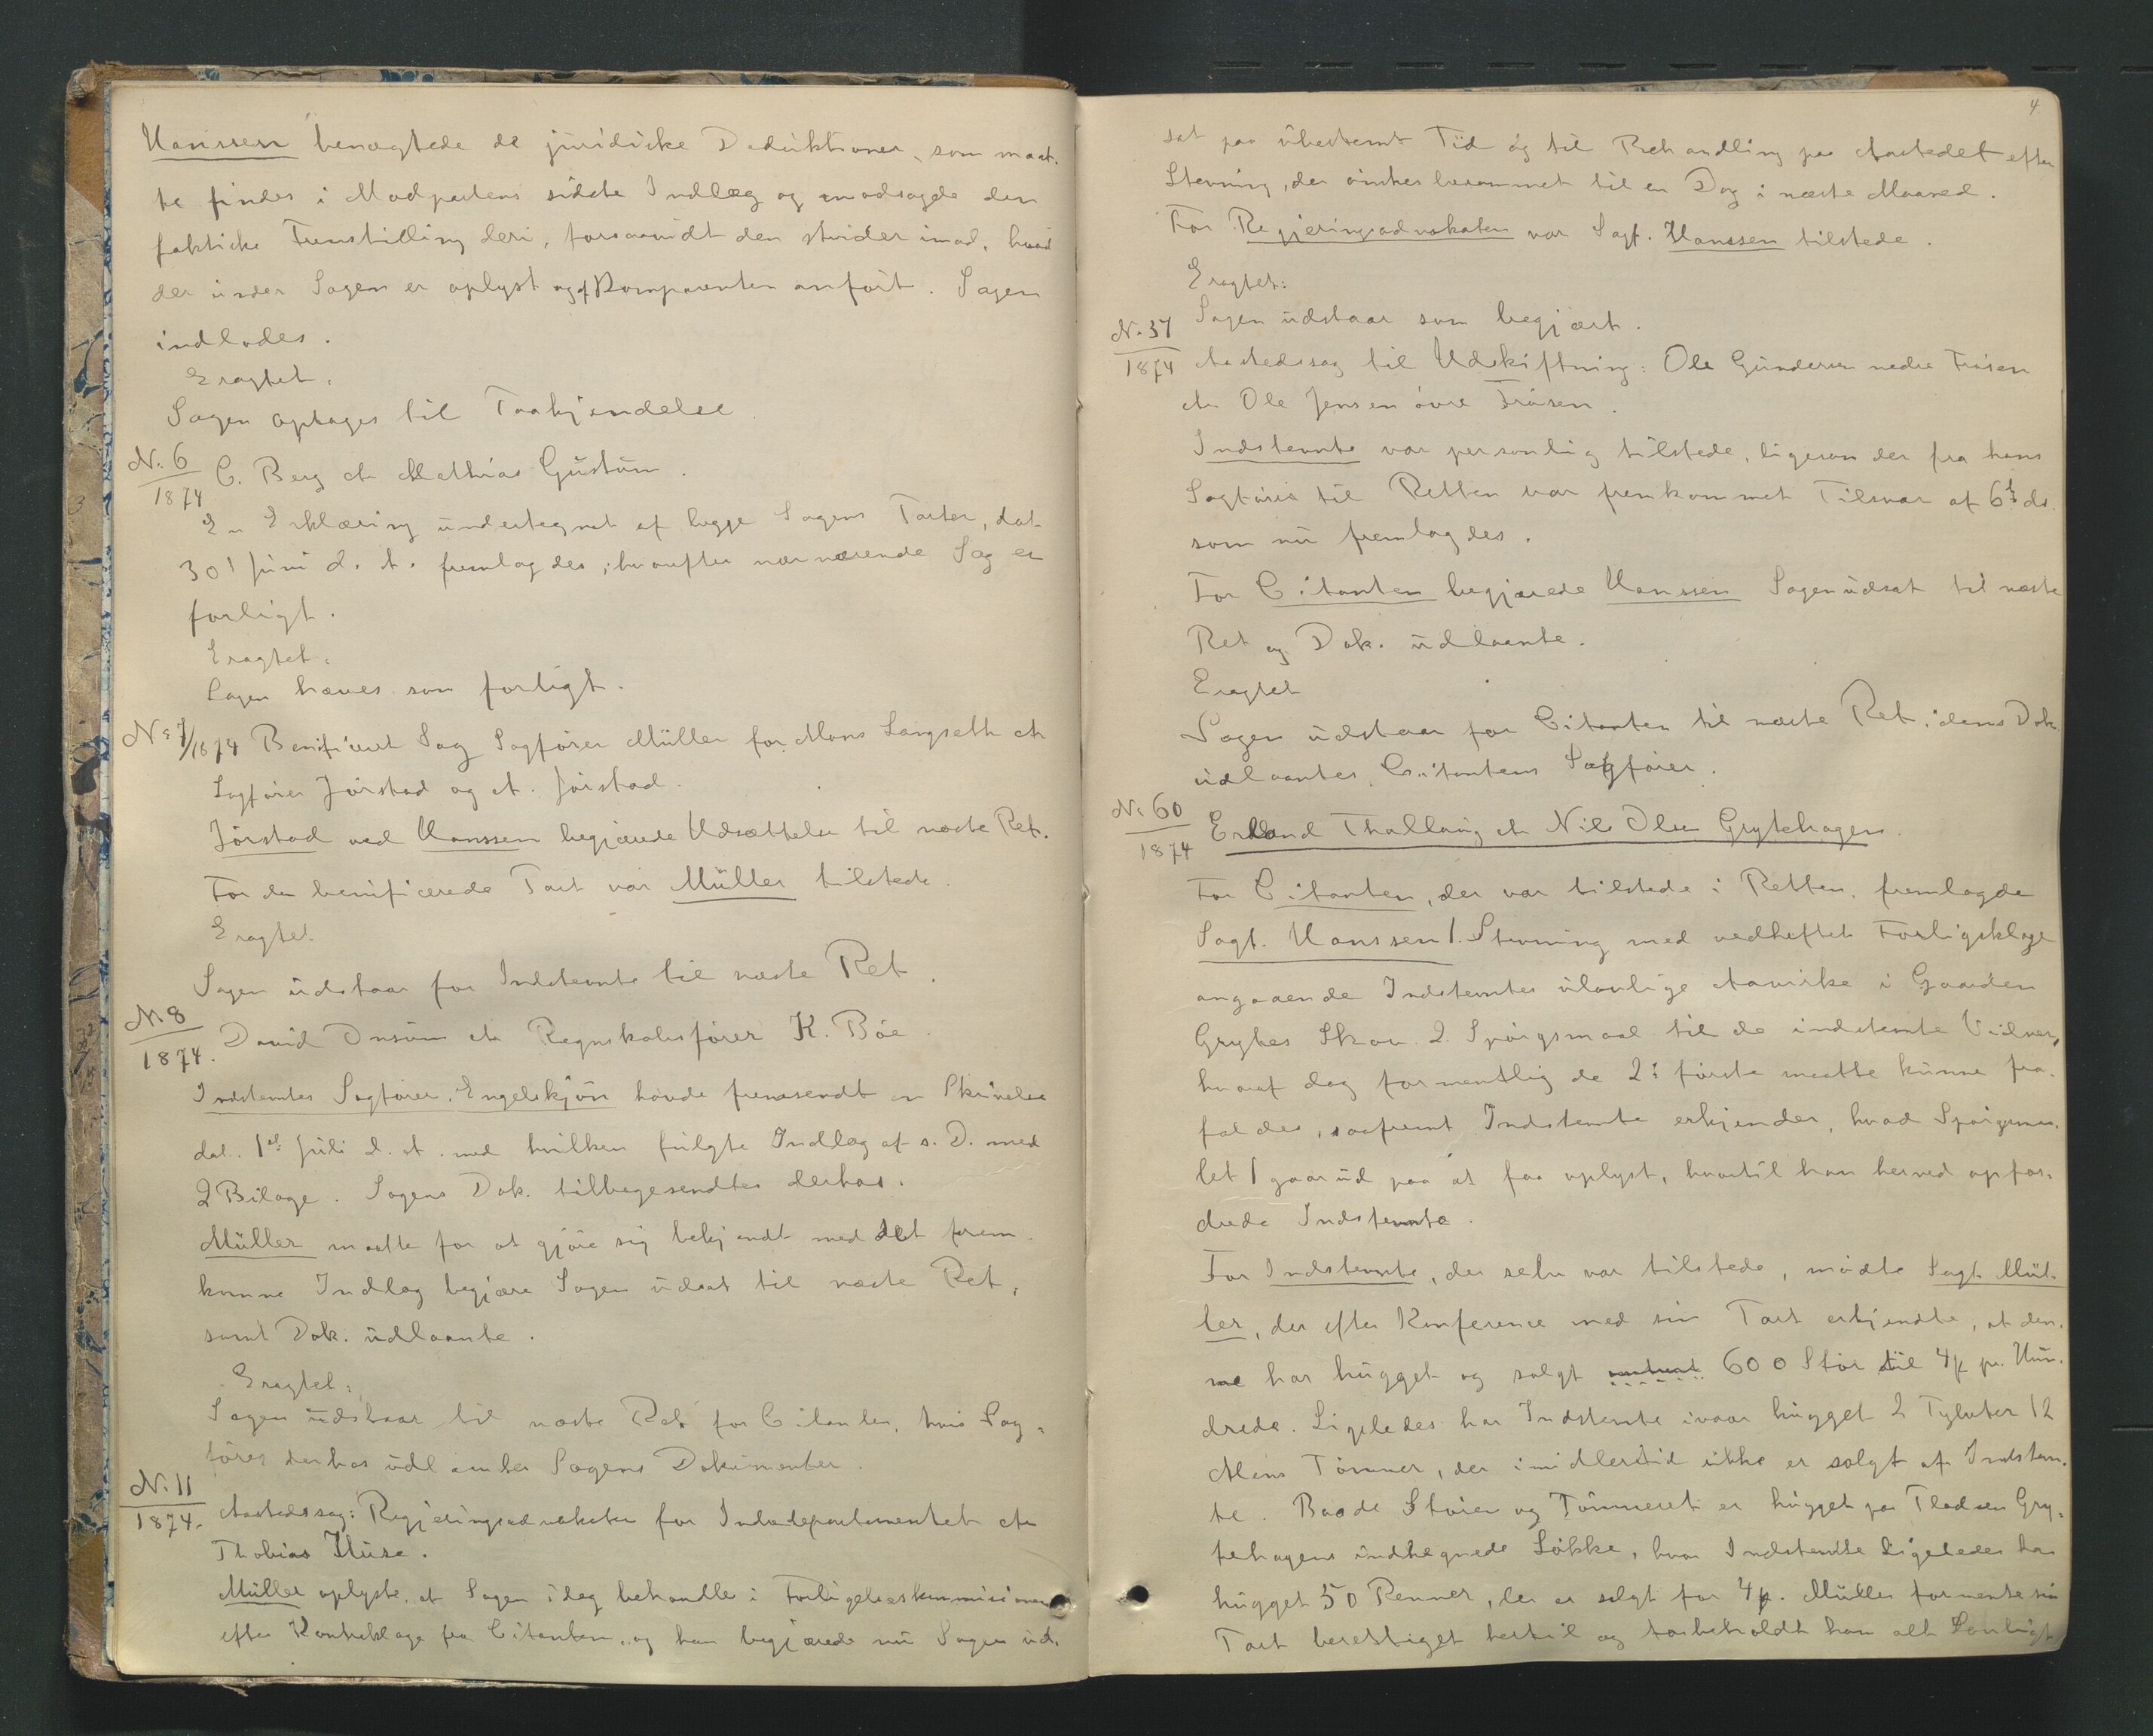 Hanssen benægtede de juridiske Deduktioner, som maat-
te findes i Modpartens sidste Indlæg og modsagde den
faktiske Fremstilling deri, forsaavidt den strider imod, hvad
der under Sagen er oplyst og af Komparenten anført. Sagen
indlodes.
Eragtet:
Sagen optages til Paakjendelse
No 6
1874
C. Berg ctr Mathias Gustum.
En Erklæring undertegnet af begge Sagens Parter, dat.
30' Juni d. A. fremlagdes, hvorefter nærværende Sag er
forligt.
Eragtet:
Sagen hæves som forligt.
No 7/1874 Benificeret Sag Sagfører Müller for Mons Langseth ctr
Sagfører Jørstad og A. Jørstad.
Jørstad ved Hanssen begjærede Udsættelse til næste Ret.
For den benificerede Part var Müller tilstede.
Eragtet.
Sagen udstaar for Indstevnte til næste Ret.
No 8
1874.
David Onsum ctr Regnskabsfører K. Bøe.
Indstevntes Sagfører, Engelskjøn havde fremsendt en Skrivelse
dat. 1ste Juli d. A. med hvilken fulgte Indlæg af s. D. med
2 Bilage. Sagens Dok. tilbagesendtes derhos.
Müller maatte for at gjøre sig bekjendt med det frem-
komne Indlæg begjære Sagen udsat til næste Ret,
samt Dok. udlaante.
Eragtet:
Sagen udstaar til næste Ret for Citanten, hvis Sag-
fører derhos udlaantes Sagens Dokumenter.
No 11
1874.
Aastedssag: Regjeringsadvokaten for Indredepartementet ctr
Thobias Huse.
Müller oplyste, at Sagen idag behandles i Forligelseskommissionen
efter Kontraklage fra Citanten, og han begjærede nu Sagen ud-
4
sat paa ubestemt Tid og til Behandling paa Aastedet efter
Stevning, der ønskes berammet til en Dag i næste Maaned.
For Regjeringsadvokaten var Sagf. Hanssen tilstede.
Eragtet:
Sagen udstaar som begjært.
No 37
1874
Aastedssag til Udskiftning: Ole Gundersen nedre Frøsen
ctr Ole Jensen øvre Frøsen.
Indstevnte var personlig tilstede, ligesom der fra hans
Sagfører til Retten var fremkommet Tilsvar af 6te ds.
som nu fremlagdes.
For Citanten begjærede Hanssen Sagen udsat til næste
Ret og Dok. udlaante.
Eragtet
Sagen udstaar for Citanten til næste Ret, idens Dok.
udlaantes Citantens Sagfører.
No 60
1874
Erland Thallaug ctr Nils Olsen Grytehagen.
For Citanten, der var tilstede i Retten, fremlagde
Sagf. Hanssen 1. Stevning med vedheftet Forligsklage
angaaende Indstevntes ulovlige Aavirke i Gaarden
Grytes Skov. 2. Spørgsmaal til de indstevnte Vidner,
hvoraf dog formentlig de 2de første maatte kunne fra-
faldes, saafremt Indstevnte erkjender, hvad Spørgsmaa-
let 1 gaar ud paa at faa oplyst, hvortil han herved opfor-
drede Indstevnte.
For Indstevnte, der selv var tilstede, mødte Sagf. Mül-
ler, der efter Konference med sin Part erkjendte, at den-
ne har hugget og solgt 600 Stør til 4 pr. Hun-
drede. Ligeledes har Indstevnte ivaar hugget 2 Tylvter 12
Alens Tømmer, der imidlertid ikke er solgt af Indstevn-
te. Baade Støren og Tømmeret er hugget paa Pladsen Gry-
tehagens indhegnede Løkke, hvor Indstevnte ligeledes har
hugget 50 Renner, der er solgt for 4. Müller formente sin
Part berettiget hertil og forbeholdt ham alt Lovligt